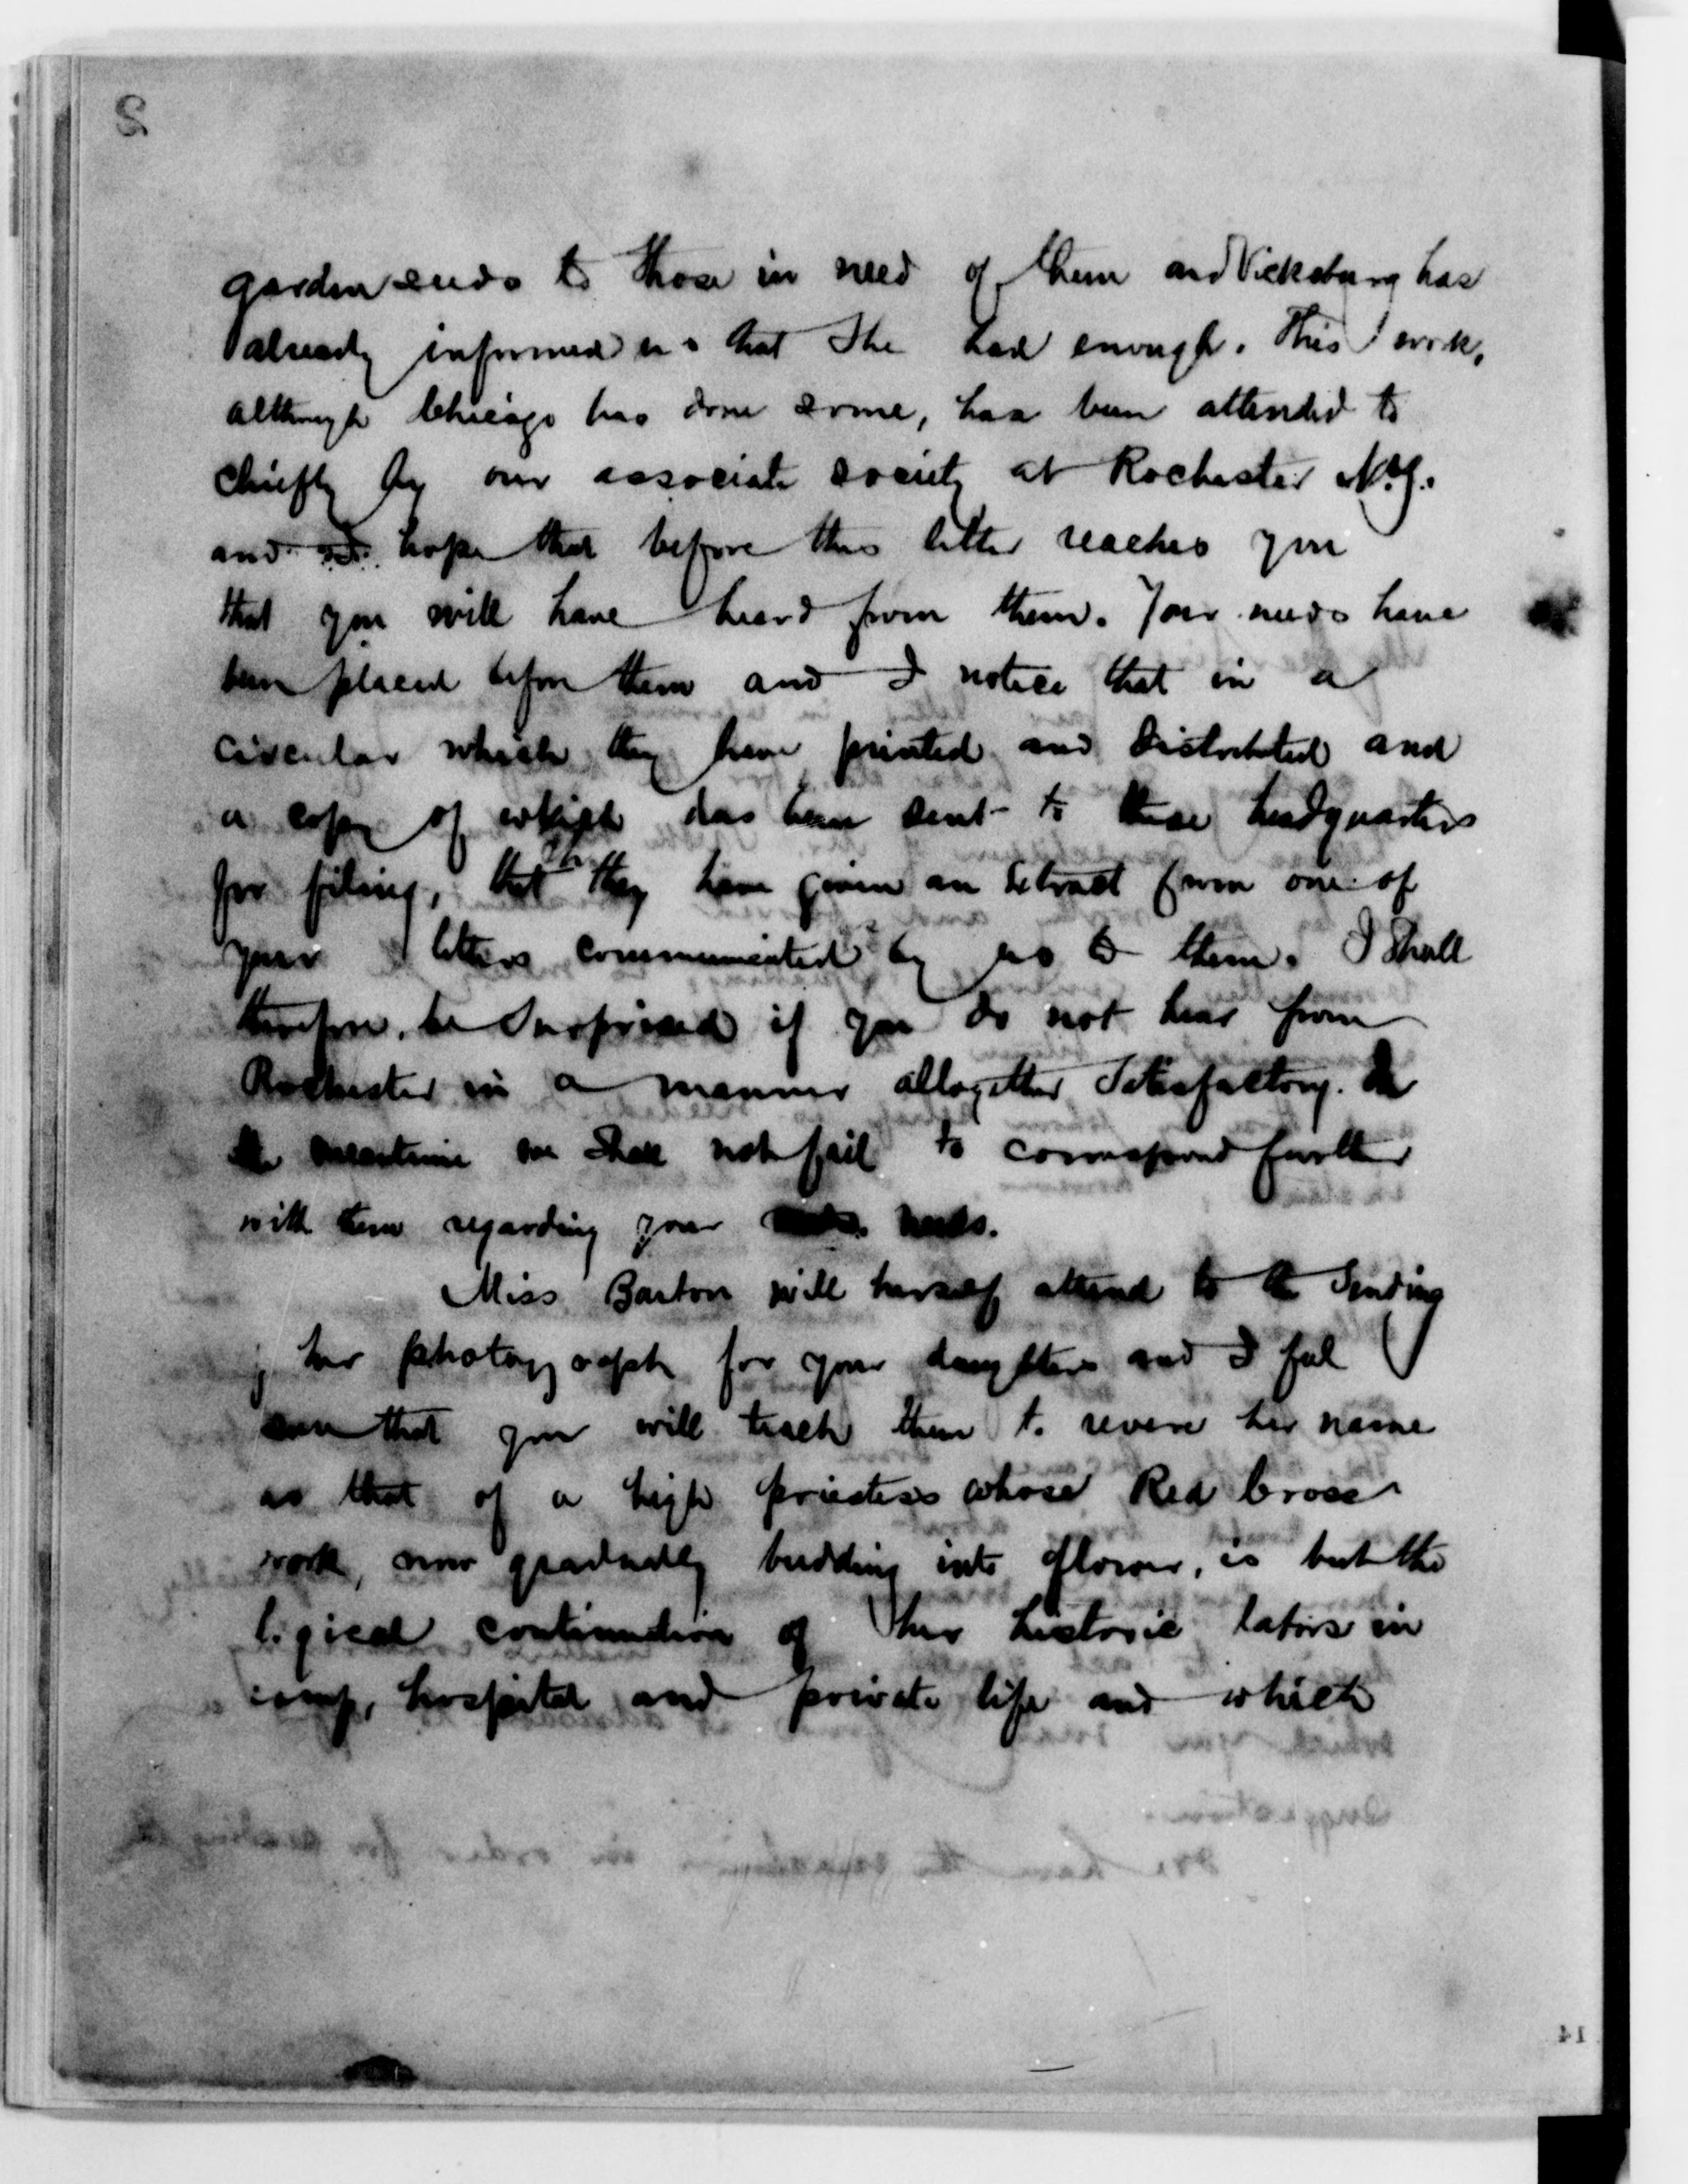 2
garden seeds to those in need of them and Vicksburg has
already informed us that she had enough. This work,
although Chicago has done some, has been attended to
chiefly by our associate society at Rochester N.Y.
and hope that before this letter reaches you
that you will have heard from them. Your needs have
been placed before them and I notice that in a
circular which they have printed and distributed and
a copy of which has been sent to these headquarters
for filing, that they have given an extract from one of
your letters communicated by us to them. I shall
therefore be surprised if you do not hear from
Rochester in a manner altogether satisfactory. In
the meantime we shall not fail to correspond further
with them regarding your needs.
Miss Barton will herself attend to the sending
of her photograph for your daughters and I feel
sure that you will teach them to revere her name
as that of a high priestess whose Red Cross
work, now gradually budding into flower, is but the
logical continuation of her historic labors in
camp, hospital and private life and which
14